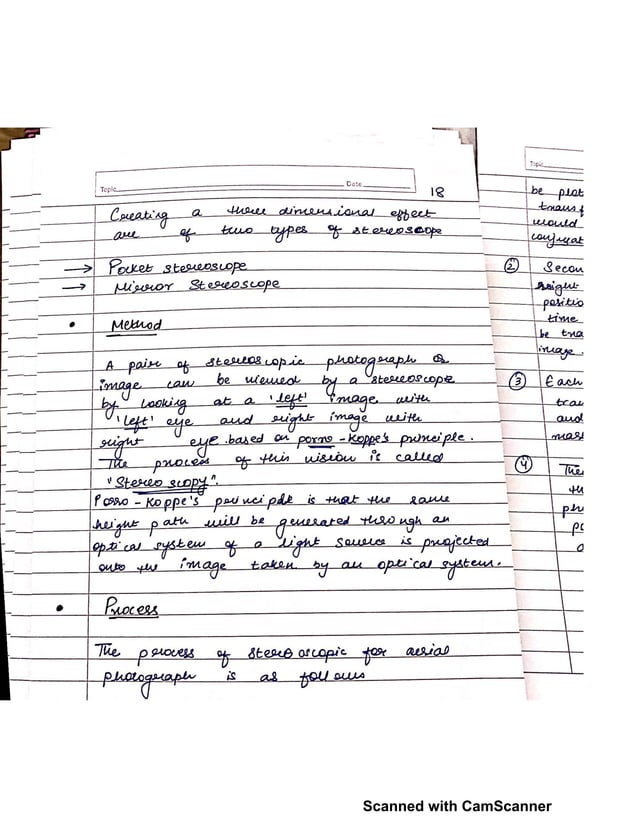 Topic Date
18
Creating a three dimensional effect
are of two types of stereoscope
→ Pocket stereoscope
→ Mirror Stereoscope
• Method
A pair of stereoscopic photograph &
image can be viewed by a stereoscope
by looking at a 'left' image with
'left' eye and right image with
right eye based on porno-Koppe's principle.
The process of this vision is called
"Stereo scopy".
Porro-Koppe's principle is that the same
height path will be generated through an
optical system of a light source is projected
onto the image taken by an optical system.
• Process
The process of stereoscopic for aerial
photograph is as follows
Topic
be plot
would
conjugat
② Secon
right
positio
time
be tra
image.
③ Each
tra
and
mas
④ The
th
ph
Scanned with CamScanner